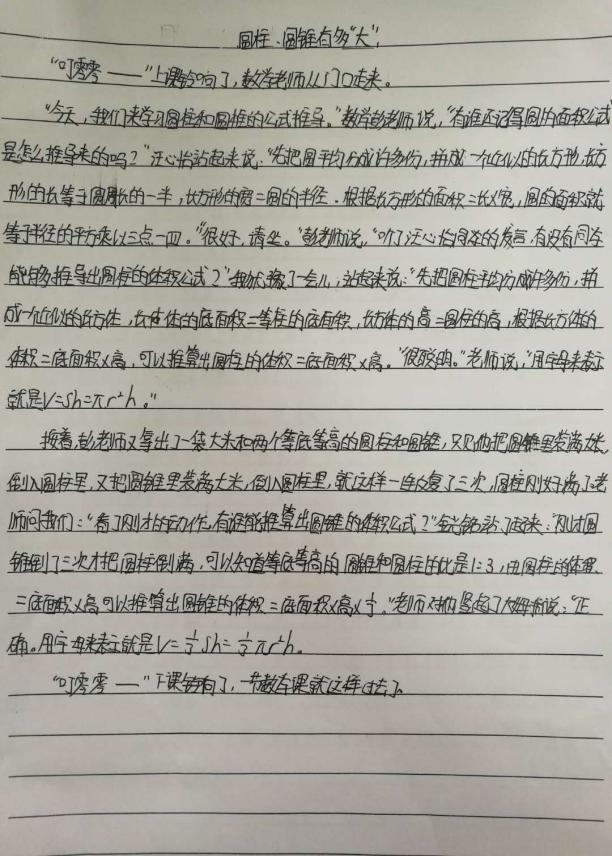 圆柱、圆锥有多“大”！
“叮零零——”上课铃响了，数学老师从门口走来。
“今天，我们来学习圆柱和圆锥的公式推导。”数学彭老师说，“有谁还记得圆的面积公式
是怎么推导来的吗？”汪心怡站起来说：“先把圆平均分成许多份，拼成一个近似的长方形，长方
形的长等于圆周长的一半，长方形的宽=圆的半径．根据长方形的面积=长×宽，圆的面积就
等于半径的平方乘以三点一四。”“很好，请坐。”彭老师说，“听了汪心怡同学的发言，有没有同学
能够推导出圆柱的体积公式？”我犹豫了一会儿，站起来说：“先把圆柱平均分成许多份，拼
成一个近似的长方体，长方体的底面积=等柱的底面积，长方体的高=圆柱的高，根据长方体的
体积=底面积×高，可以推算出圆柱的体积=底面积×高。”“很聪明。”老师说，“用字母来表示
就是V=Sh=πr²h。”
接着，彭老师又拿出了一袋大米和两个等底等高的圆柱和圆锥，只见他把圆锥里装满大米，
倒入圆柱里，又把圆锥里装满大米，倒入圆柱里，就这样一连反复了三次，圆柱刚好满了。老
师问我们：“看了刚才的动作，有谁能推算出圆锥的体积公式？”站了起来：“刚才圆
锥倒了三次才把圆柱倒满，可以知道等底等高的圆锥和圆柱的比是1:3，由圆柱的体积
=底面积×高可以推算出圆锥的体积=底面积×高×1/3。”老师对他竖起了大拇指说：“正
确。用字母来表示就是V=1/3Sh=1/3πr²h。
“叮零零——”下课铃响了，一节数学课就这样过去了。